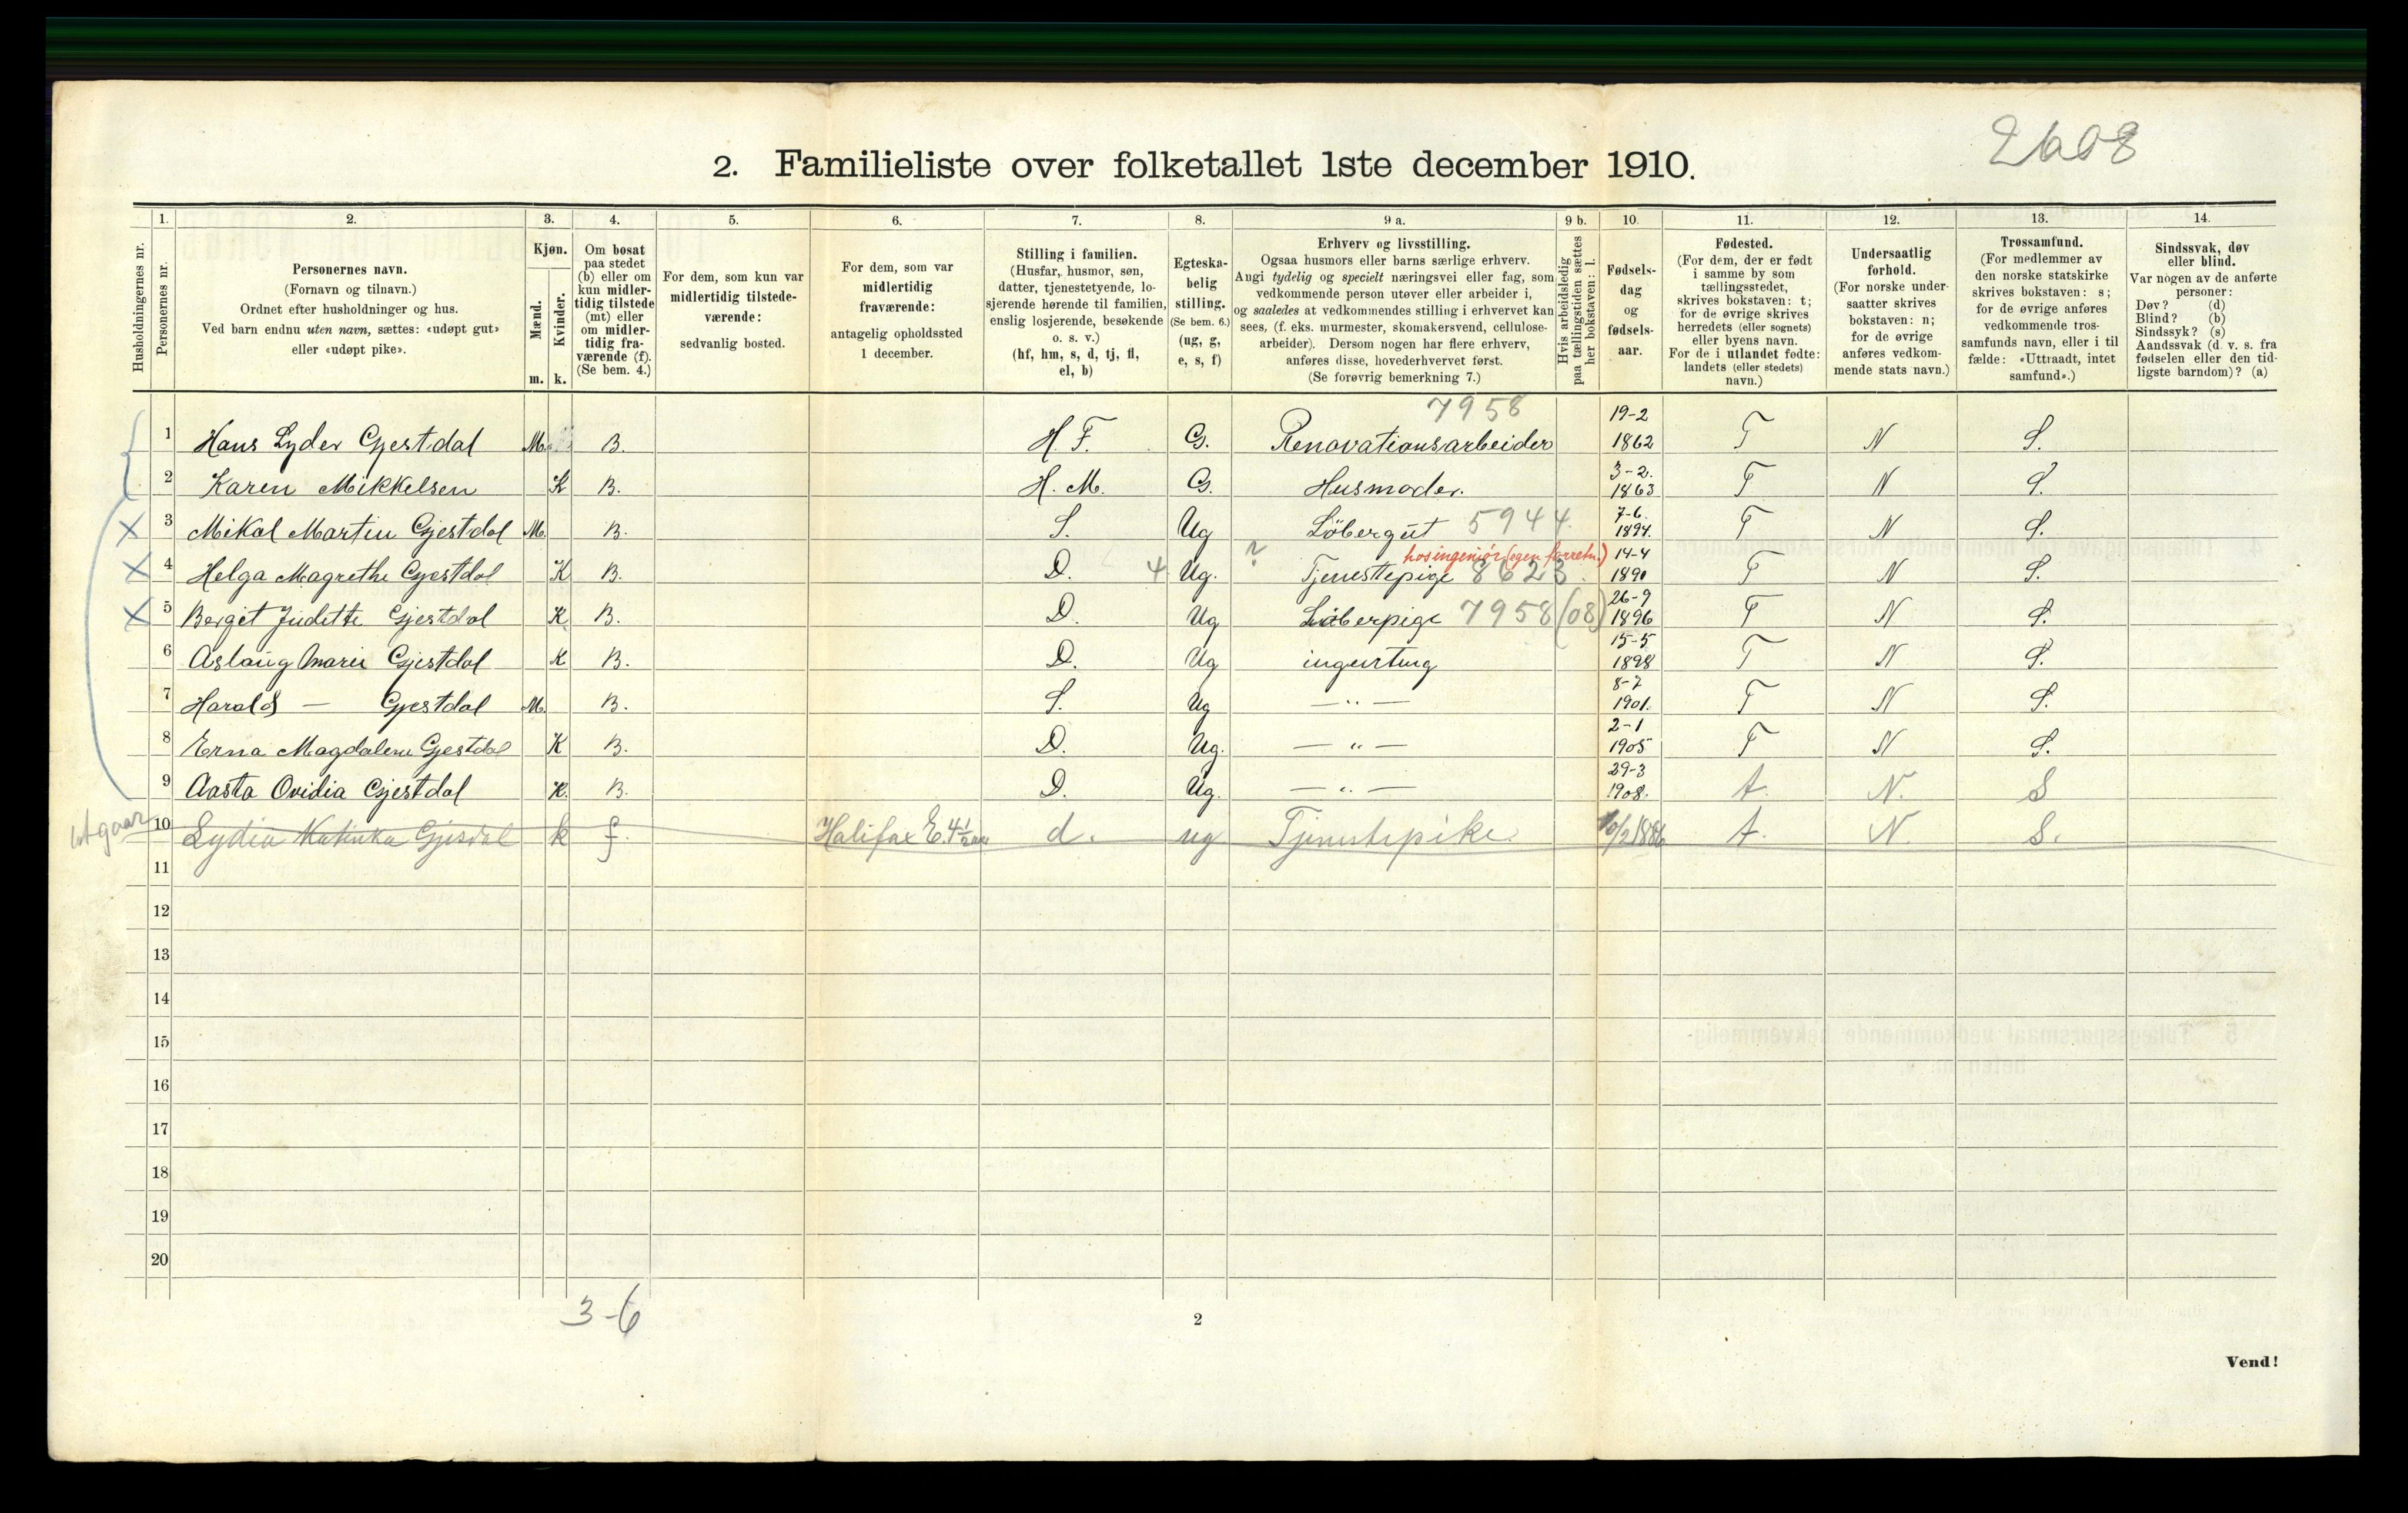 2608
2. Familieliste over folketallet 1ste december 1910.
Husholdningernes nr.
1. Personernes nr.
2. Personernes navn.
(Fornavn og tilnavn.)
Ordnet efter husholdninger og hus.
Ved barn endnu uten navn, sættes: «udøpt gut»
eller «udøpt pike».
3. Kjøn.
Mænd. m.
Kvinder. k.
4. Om bosat
paa stedet
(b) eller om
kun midler-
tidig tilstede
(mt) eller
om midler-
tidig fra-
værende (f).
(Se bem. 4.)
5. For dem, som kun var
midlertidig tilstede-
værende:
sedvanlig bosted.
6. For dem, som var
midlertidig
fraværende:
antagelig opholdssted
1 december.
7. Stilling i familien.
(Husfar, husmor, søn,
datter, tjenestetyende, lo-
sjerende hørende til familien,
enslig losjerende, besøkende
o. s. v.)
(hf, hm, s, d, tj, fl,
el, b)
8. Egteska-
belig
stilling.
(Se bem. 6.)
(ug, g,
e, s, f)
9 a. Erhverv og livsstilling.
Ogsaa husmors eller barns særlige erhverv.
Angi tydelig og specielt næringsvei eller fag, som
vedkommende person utøver eller arbeider i,
og saaledes at vedkommendes stilling i erhvervet kan
sees, (f. eks. murmester, skomakersvend, cellulose-
arbeider). Dersom nogen har flere erhverv,
anføres disse, hovederhvervet først.
(Se forøvrig bemerkning 7.)
9 b. Hvis arbeidsledig
paa tællingstiden sættes
her bokstaven: l.
10. Fødsels-
dag
og
fødsels-
aar.
11. Fødested.
(For dem, der er født
i samme by som
tællingsstedet,
skrives bokstaven: t;
for de øvrige skrives
herredets (eller sognets)
eller byens navn.
For de i utlandet fødte:
landets (eller stedets)
navn.)
12. Undersaatlig
forhold.
(For norske under-
saatter skrives
bokstaven: n;
for de øvrige
anføres vedkom-
mende stats navn.)
13. Trossamfund.
(For medlemmer av
den norske statskirke
skrives bokstaven: s;
for de øvrige anføres
vedkommende tros-
samfunds navn, eller i til
fælde: «Uttraadt, intet
samfund».)
14. Sindssvak, døv
eller blind.
Var nogen av de anførte
personer:
Døv? (d)
Blind? (b)
Sindssyk? (s)
Aandssvak (d. v. s. fra
fødselen eller den tid-
ligste barndom)? (a)
7958
1 Hans Lyder Gjestdal M. B. H. F. G. Renovationsarbeider 19-2 1862 T N S.
2 Karen Mikkelsen K B. H. M. G. Husmoder. 3-2. 1863 T N S.
X 3 Mikal Martin Gjestdal M. B. S. Ug Löbergut 5944. 7-6. 1894. T N S.
hos ingeniør (egen forretn.)
X 4 Helga Magrethe Gjestdal K B. D. 4 Ug. ? Tjenestepige 8623. 14-4 1890 T N S.
X 5 Bergit Judette Gjestdal K B. D. Ug Löberpige 7958 (08) 26-9 1896 T N S.
6 Aslaug Marie Gjestdal K B. D. Ug ingenting 15-5 1898 T N S.
7 Harald — Gjestdal M. B. S. Ug — " — 8-7 1901. T N S.
8 Erna Magdalene Gjestdal K B. D. Ug. — " — 2-1 1905 T N S.
9 Aasta Ovidia Gjestdal K. B. D. Ug. — " — 29-3 1908. t. N. S
utgaar 10 Lydia Katinka Gjesdal k f. Halifax E. 4½ aar d. ug Tjenestepike. 10/2 1886 t. N. S.
11
12
13
14
15
16
17
18
19
20
3-6
2
Vend!